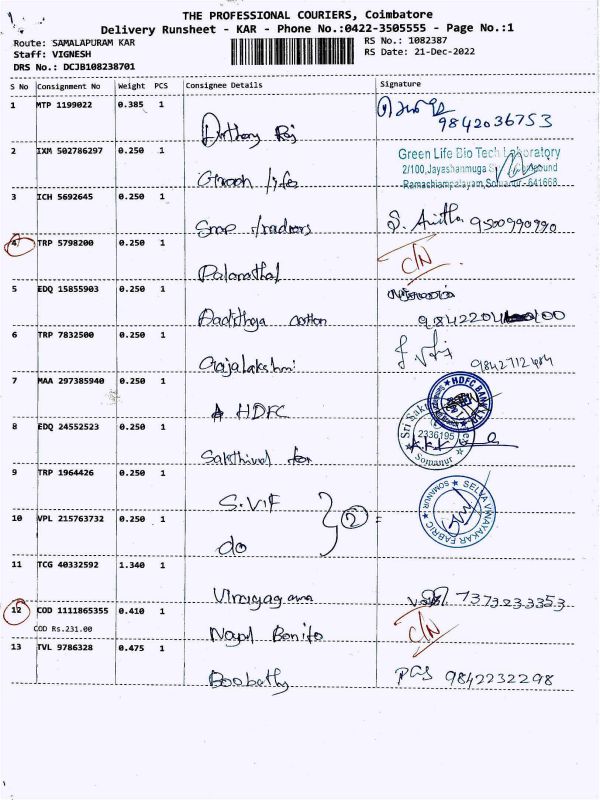 THE PROFESSIONAL COURIERS, Coimbatore
Delivery Runsheet - KAR - Phone No.:0422-3505555 - Page No.:1
Route: SAMALAPURAM KAR
RS No.: 1082387
Staff: VIGNESH
RS Date: 21-Dec-2022
DRS No.: DCJB108238701
S No Consignment No Weight PCS Consignee Details Signature
1 MTP 1199022 0.385 1
9842036753
2 IXM 502786297 0.250 1
Green Life Bio Tech Laboratory
2/100,Jayashanmuga
Ramachiampalayam,Somanur - 641668.
Green life
3 ICH 5692645 0.250 1
Snap traders S. Anitha 9500990990
4 TRP 5798200 0.250 1
C/N
5 EDQ 15855903 0.250 1
cotton
6 TRP 7832500 0.250 1
Gajalakshmi
7 MAA 297385940 0.250 1
HDFC BANK
HDFC
8 EDQ 24552523 0.250 1
Sri Sakthi
2336195
Somanur
Sakthivel tex
9 TRP 1964426 0.250 1
S.V.F
2 =
SELVA VINAYAKAR FABRIC
SOMANUR
10 VPL 215763732 0.250 1
do
11 TCG 40332592 1.340 1
Vinayagana 7373233353
12 COD 1111865355 0.410 1
COD Rs.231.00
C/N
13 TVL 9786328 0.475 1
Boobathy 9842232298